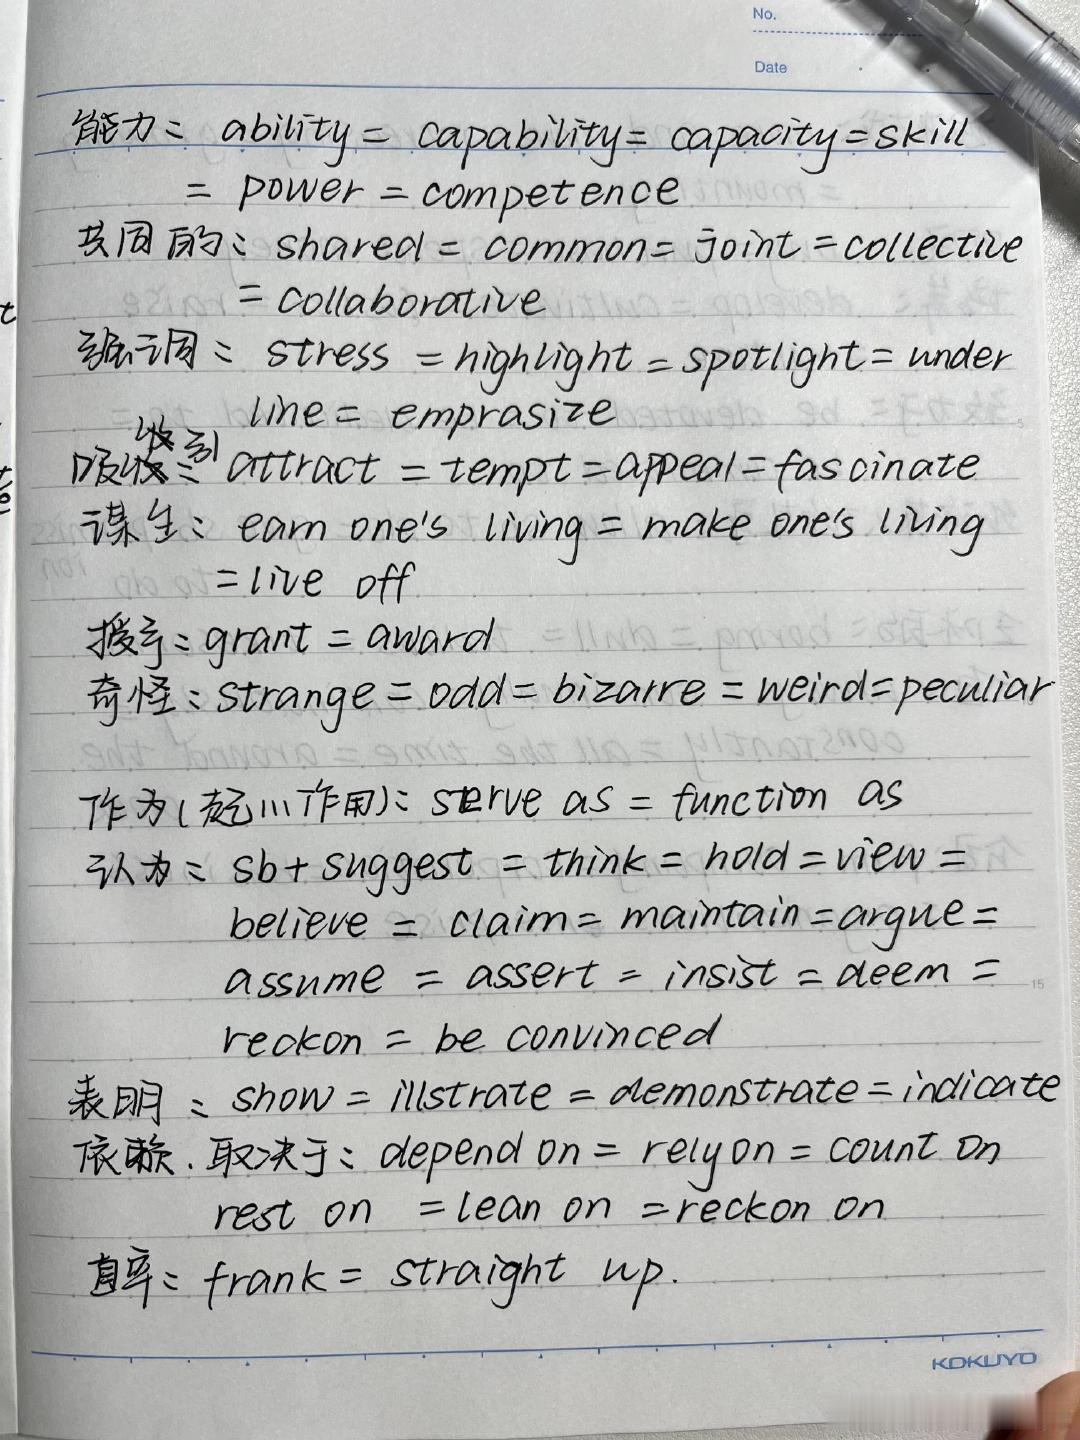 No.
Date
能力: ability = capability = capacity = skill
= power = competence
共同的: shared = common = joint = collective
= collaborative
强调: stress = highlight = spotlight = under
line = emprasize
吸引: attract = tempt = appeal = fascinate
谋生: earn one's living = make one's living
= live off
授予: grant = award
奇怪: strange = odd = bizarre = weird = peculiar
作为(起…作用): serve as = function as
认为: sb + suggest = think = hold = view =
believe = claim = maintain = argue =
assume = assert = insist = deem =
reckon = be convinced
表明: show = illstrate = demonstrate = indicate
依赖.取决于: depend on = rely on = count on
rest on = lean on = reckon on
直率: frank = straight up.
15
KOKUYO